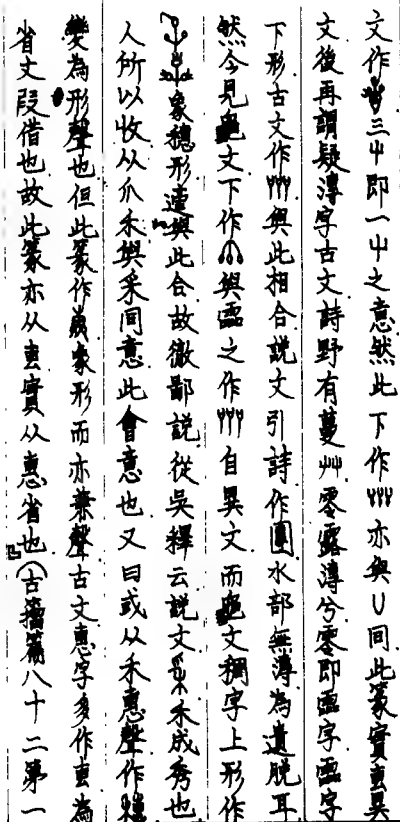 文作三屮即一屮之意然此下作亦與∪同此篆實叀異
文後再謂疑漙字古文詩野有蔓艸零露漙兮零即霝字霝字
下形古文作與此相合説文引詩作團水部無漙為遺脱耳
然今見文下作與霝之作自異文而文稠字上形作
象穗形遠與此合故徹鄙説從吳釋云説文采禾成秀也
人所以收从爪禾與采同意此會意也又曰或从禾惠聲作穗
變為形聲也但此篆作象形而亦兼聲古文惠字多作叀為
省文叚借也故此篆亦从叀實从惠省也（古籀篇八十二第一